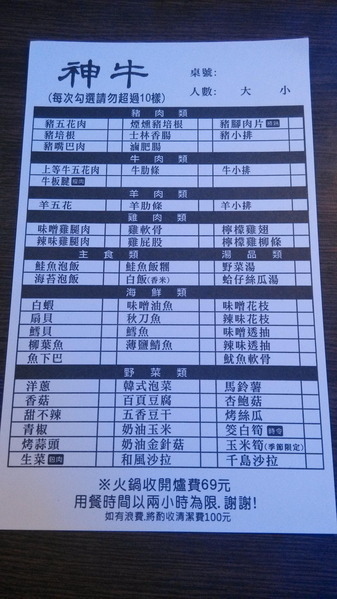 神牛
桌號:
(每次勾選請勿超過10樣)
人數: 大 小
豬肉類
豬五花肉 煙燻豬培根 豬腳肉片
豬培根 士林香腸 豬小排
豬嘴巴肉 滷肥腸
牛肉類
上等牛五花肉 牛肋條 牛小排
牛板腱
羊肉類
羊五花 羊肋條 羊小排
雞肉類
味噌雞腿肉 雞軟骨 檸檬雞翅
辣味雞腿肉 雞屁股 檸檬雞柳條
主食類 湯品類
鮭魚泡飯 鮭魚飯糰 野菜湯
海苔泡飯 白飯(香米) 蛤仔絲瓜湯
海鮮類
白蝦 味噌油魚 味噌花枝
扇貝 秋刀魚 辣味花枝
鱈貝 鱈魚 味噌透抽
柳葉魚 薄鹽鯖魚 辣味透抽
魚下巴 魷魚軟骨
野菜類
洋蔥 韓式泡菜 馬鈴薯
香菇 百頁豆腐 杏鮑菇
甜不辣 五香豆干 烤絲瓜
青椒 奶油玉米 筊白筍
烤蒜頭 奶油金針菇 玉米筍(季節限定)
生菜 和風沙拉 千島沙拉
※火鍋收開爐費69元
用餐時間以兩小時為限.謝謝!
如有浪費,將酌收清潔費100元